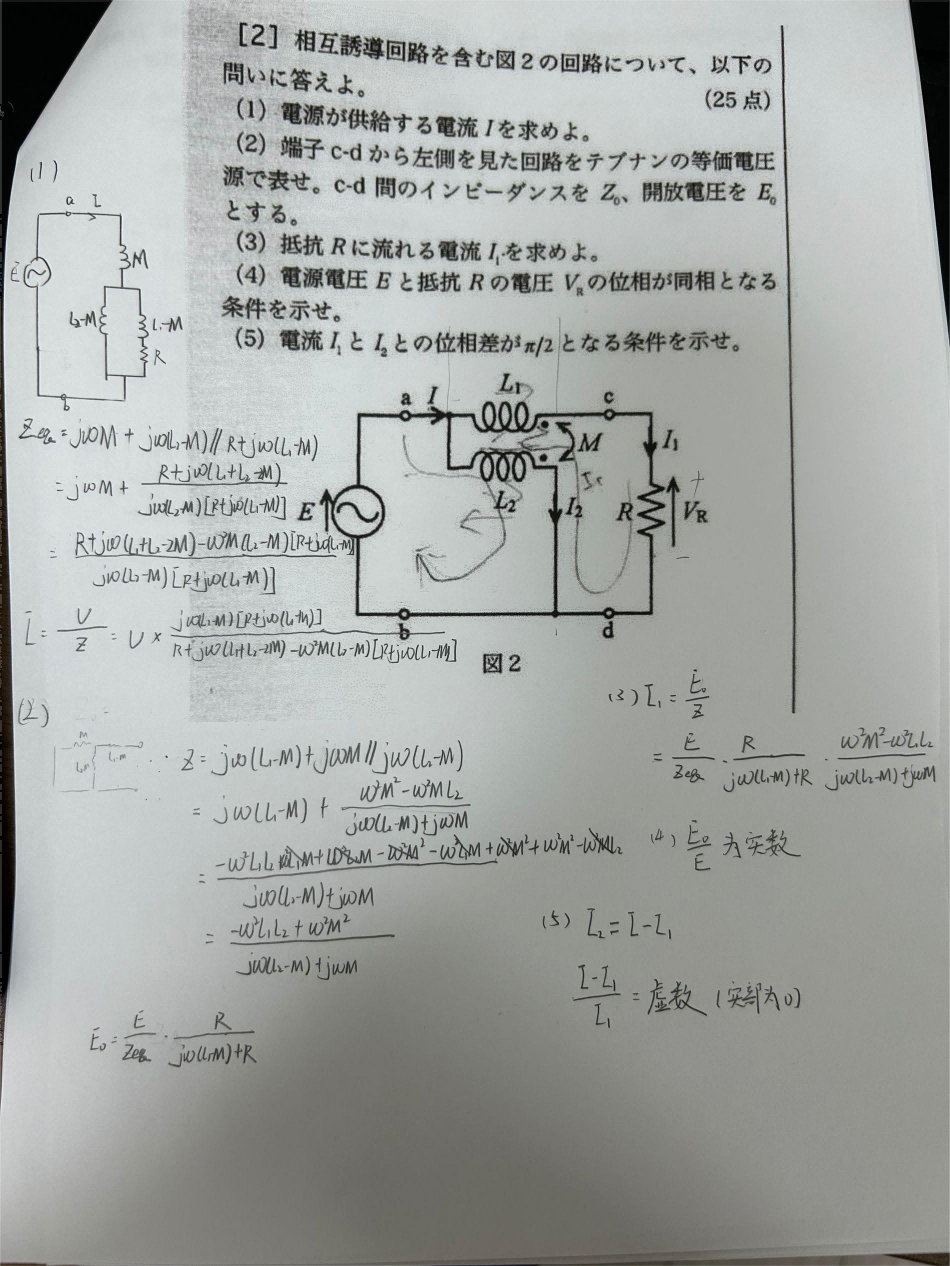 [2] 相互誘導回路を含む図2の回路について、以下の
問いに答えよ。
(25点)
(1) 電源が供給する電流Iを求めよ。
(2) 端子c-dから左側を見た回路をテブナンの等価電圧
源で表せ。c-d間のインピーダンスを Z₀、開放電圧を E₀
とする。
(3) 抵抗Rに流れる電流I₁を求めよ。
(4) 電源電圧Eと抵抗Rの電圧 V_Rの位相が同相となる
条件を示せ。
(5) 電流I₁とI₂との位相差がπ/2となる条件を示せ。
a I L₁ c
M I₁
E L₂ I₂ R V_R
b d
図2
(1)
a I
E M
L₂-M L₁-M
R
b
Zeq = jωM + jω(L₂-M) // R+jω(L₁-M)
= jωM + R+jω(L₁+L₂-2M) / jω(L₂-M)[R+jω(L₁-M)]
= R+jω(L₁+L₂-2M)-ω²M(L₂-M)[R+jω(L₁-M)] / jω(L₂-M)[R+jω(L₁-M)]
I = U/Z = U × jω(L₂-M)[R+jω(L₁-M)] / R+jω(L₁+L₂-2M)-ω²M(L₂-M)[R+jω(L₁-M)]
(2)
M L₁-M
Z = jω(L₁-M)+jωM // jω(L₂-M)
= jω(L₁-M) + ω²M²-ω²ML₂ / jω(L₂-M)+jωM
= -ω²L₁L₂+ω²M² / jω(L₂-M)+jωM
E₀ = E/Zeq · R / jω(L₁-M)+R
(3) I₁ = E₀/Z
= E/Zeq · R / jω(L₁-M)+R · ω²M²-ω²L₁L₂ / jω(L₂-M)+jωM
(4) E₀/E 为实数
(5) I₂ = I-I₁
I-I₁ / I₁ = 虚数 (实部为0)